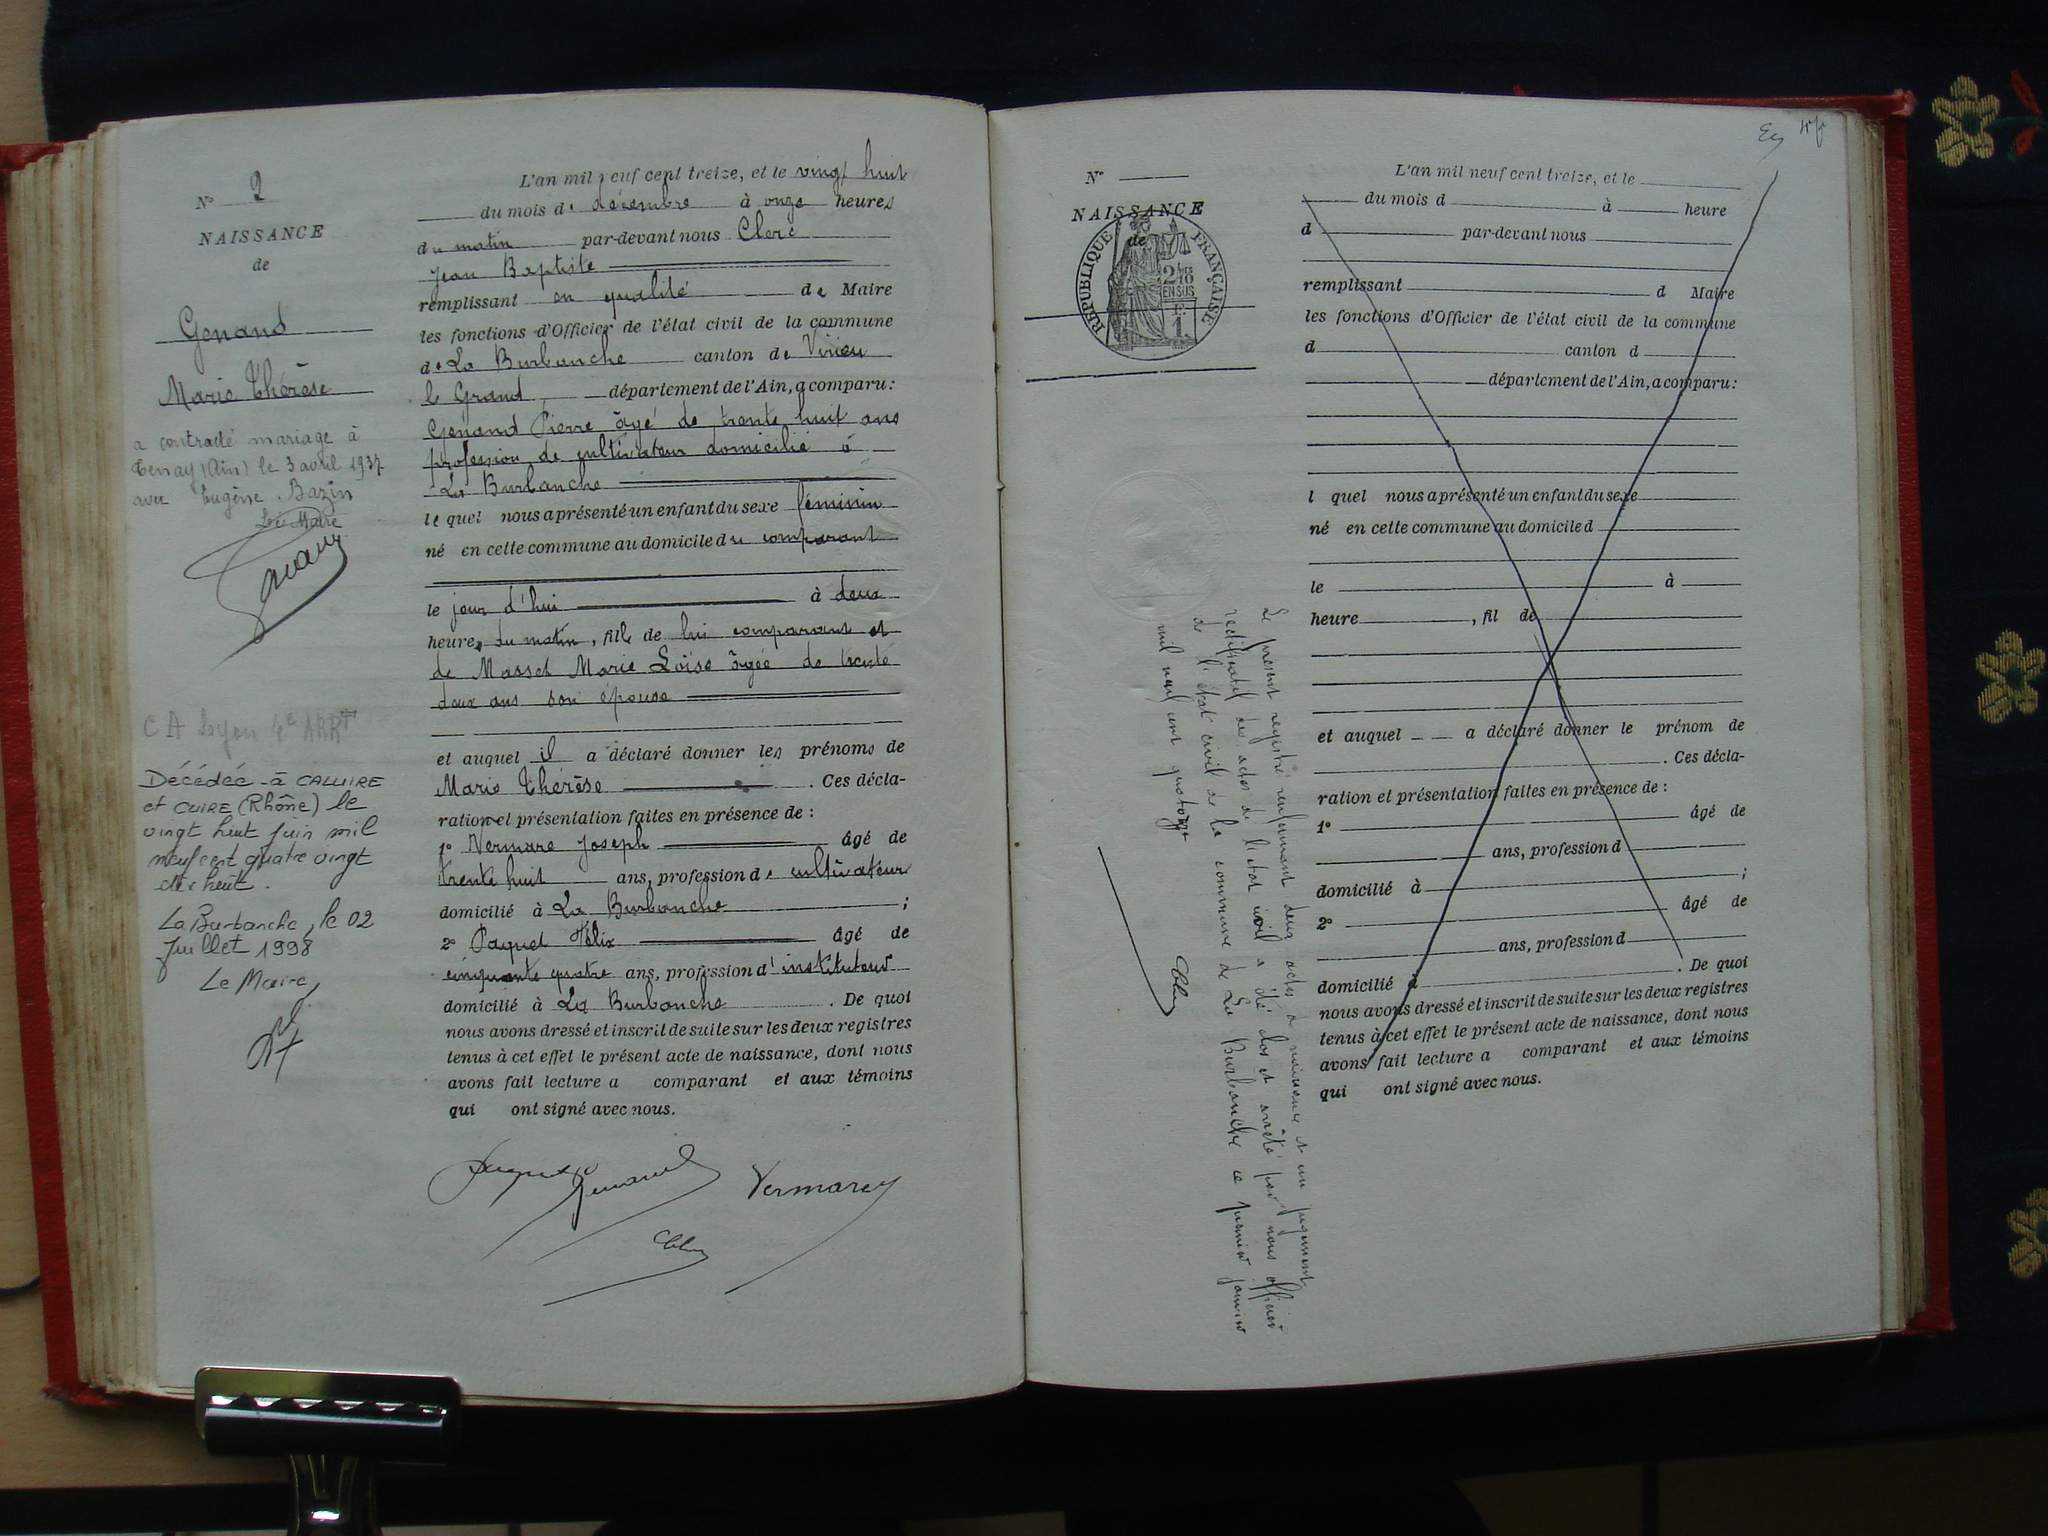 N° 2
NAISSANCE
de
Genand
Marie Thérèse
a contracté mariage à
Tenay (Ain) le 3 avril 1937
avec Eugène Bazin
Le Maire
C A Lyon 4e ARRT
Décédée à CALUIRE
et CUIRE (Rhône) le
vingt huit juin mil
neuf cent quatre vingt
dix huit.
La Burbanche, le 02
Juillet 1998
Le Maire
L'an mil neuf cent treize, et le vingt huit
du mois de décembre à onze heures
du matin par-devant nous Clerc
Jean Baptiste
remplissant en qualité de Maire
les fonctions d'Officier de l'état civil de la commune
de La Burbanche canton de Virieu
le Grand, département de l'Ain, a comparu :
Genand Pierre âgé de trente huit ans
profession de cultivateur domicilié à
La Burbanche
lequel nous a présenté un enfant du sexe féminin
né en cette commune au domicile du comparant
le jour d'hui à deux
heures du matin, fille de lui comparant et
de Masset Marie Loïse âgée de trente
deux ans son épouse
et auquel il a déclaré donner les prénoms de
Marie Thérèse. Ces décla-
ration et présentation faites en présence de :
1° Vermare Joseph âgé de
trente huit ans, profession de cultivateur
domicilié à La Burbanche ;
2° Paquet Félix âgé de
cinquante quatre ans, profession d'instituteur
domicilié à La Burbanche. De quoi
nous avons dressé et inscrit de suite sur les deux registres
tenus à cet effet le présent acte de naissance, dont nous
avons fait lecture a comparant et aux témoins
qui ont signé avec nous.
Paquet Genand Vermarey
N°
NAISSANCE
de
REPUBLIQUE FRANÇAISE
2/10
EN SUS
1
L'an mil neuf cent treize, et le
du mois d à heure
d par-devant nous
remplissant d Maire
les fonctions d'Officier de l'état civil de la commune
d canton d
département de l'Ain, a comparu :
l quel nous a présenté un enfant du sexe
né en cette commune au domicile d
le à
heure , fil de
et auquel a déclaré donner le prénom de
. Ces décla-
ration et présentation faites en présence de :
1° âgé de
ans, profession d
domicilié à ;
2° âgé de
ans, profession d
domicilié à . De quoi
nous avons dressé et inscrit de suite sur les deux registres
tenus à cet effet le présent acte de naissance, dont nous
avons fait lecture a comparant et aux témoins
qui ont signé avec nous.
Le présent registre renfermant deux actes de naissance et un jugement
rectificatif des actes de l'état civil a été clos et arrêté par nous officier
de l'état civil de la commune de La Burbanche ce premier janvier
mil neuf cent quatorze